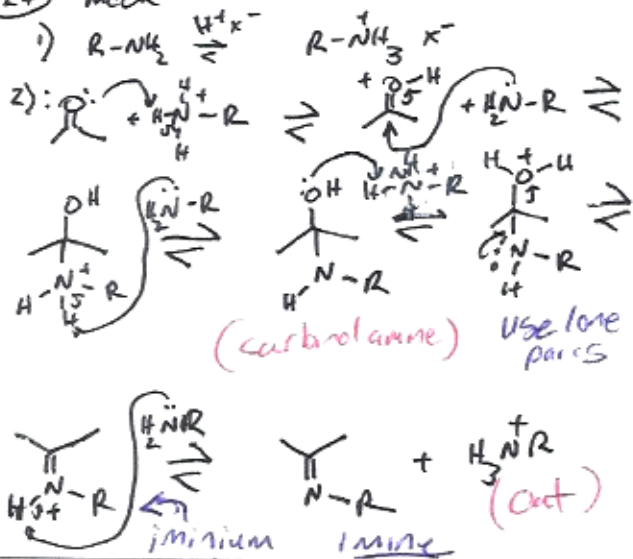 24) mech
1) R-NH2 H+ x- ⇌ R-NH3+ x-
2) :O: + H-N+-R H H ⇌ +O-H + H2N-R ⇌
OH H2N-R ⇌ :OH H-N+-R ⇌ H-O+-H ⇌
H-N+-R H N-R H N-R H
(carbinolamine) use lone
pairs
H2NR ⇌ + H3N+R
H N+-R N-R (cat)
iminium imine